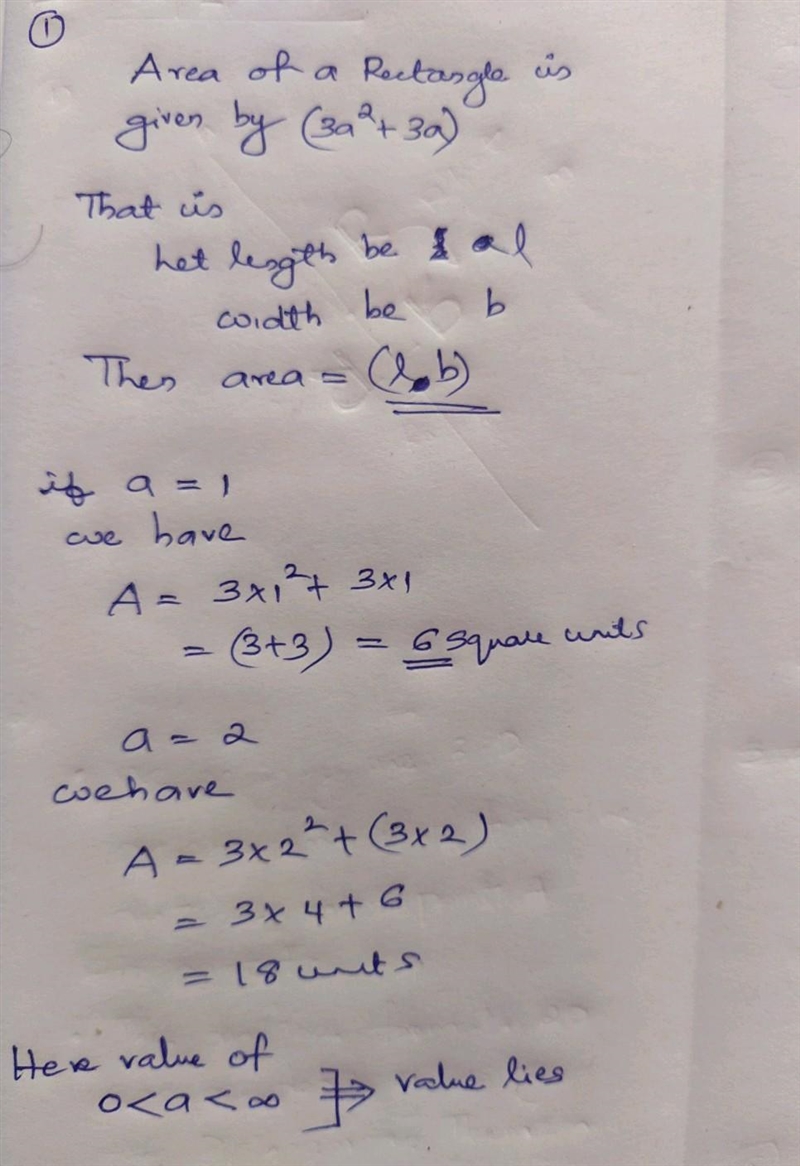 ①
Area of a Rectangle is
given by (3a²+ 3a)
That is
Let length be l
width be b
Then area = (l.b)
if a = 1
we have
A = 3×1²+ 3×1
= (3+3) = 6 square units
a = 2
we have
A = 3×2²+(3×2)
= 3×4+6
= 18 units
Here value of
0<a<∞ ]⇒ value lies